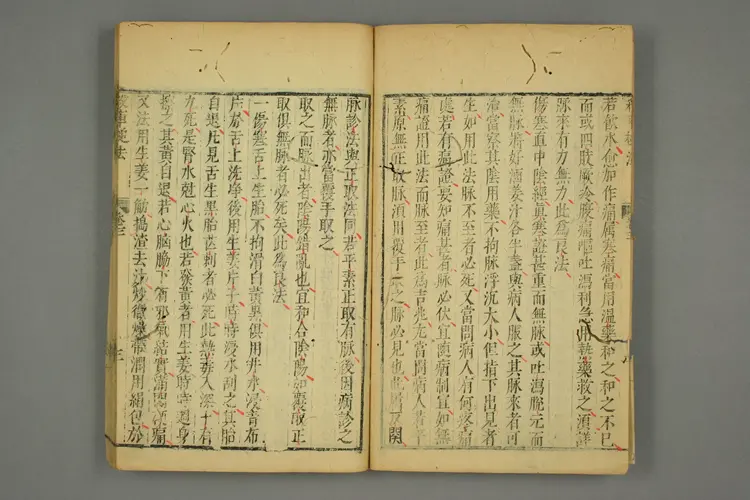 若飲水愈如作痛屬寒痛當用溫藥和之和之不已
而或四肢厥冷腹痛嘔吐瀉利急用熱藥救之須詳
脉來有力無力此爲良法
傷寒直中陰經眞寒證甚重而無脉或吐瀉脫元而
無脉將好酒姜汁各半盞與病人服之其脉來者可
治當察其陰用藥不拘脉浮沉大小但指下出見者
生如用此法脉不至者必死又當問病人有何疼痛
處若有痛證要知痛甚者脉必伏宜隨病制宜如無
痛證用此法而脉至者此爲吉兆尤當問病人若平
素原無正取脉須用覆手取之脉必見也此屬反關
脉診法與正取法同若平素正取有脉後因病診之
無脉者亦當覆手取之
取之而脉出者陰陽錯亂也宜和合陰陽如覆取正
取俱無脉者必死矣此爲良法
一傷寒舌上生胎不拘滑白黃黑俱用井水浸青布
片於舌上洗淨後用生姜片子時時浸水刮之其胎
自退凡見舌生黑胎芒刺者必死此熱毒入深十有
九死是腎水尅心火也若發黃者用生姜時時遍身
擦之其黃自退若心胸脇下有邪氣結實滿悶硬痛
又法用生姜一觔搗渣去汁炒微燥帶潤用絹包於